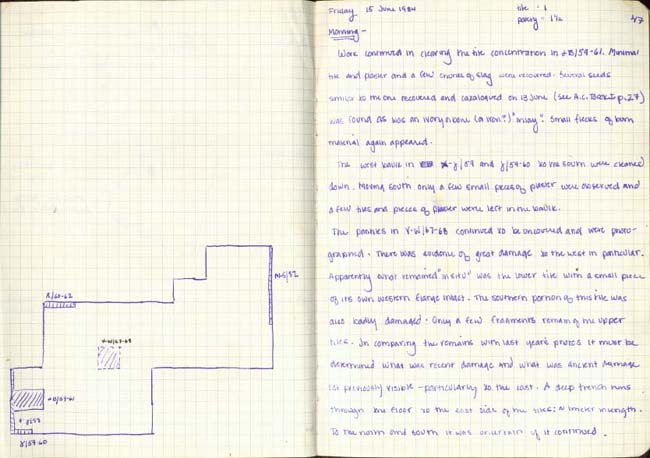 N-S/82
R/60-62
X-W/67-68
Friday 15 June 1984
tile - 1
pottery - 1½
47
Morning -
Work continued in clearing the tile concentration in /59-61. Minimal
tile and plaster and a few chunks of slag were recovered. Several seeds
similar to the one recovered and catalogued on 13 June (see A.C. Book I p. 27)
was found as was an ivory nbone (or iron?) "inlay". Small flecks of burn
material again appeared.
The west baulk in /59 and /59-60 to the south were cleaned
down. Moving south only a few small pieces of plaster were observed and
a few tiles and pieces of plaster were left in the baulk.
The pantiles in X-W/67-68 continued to be uncovered and were photo-
graphed. There was evidence of great damage to the west in particular.
Apparently what remained "in situ" was the lower tile with a small piece
of its own western flange intact. The southern portion of this tile was
also badly damaged. Only a few fragments remain of the upper
tiles. In comparing the remains with last years photos it must be
determined what was recent damage and what was ancient damage
previously visible - particularly to the east. A deep trench runs
through the floor to the east side of the tiles: in length.
To the north and south it was uncertain if it continued.